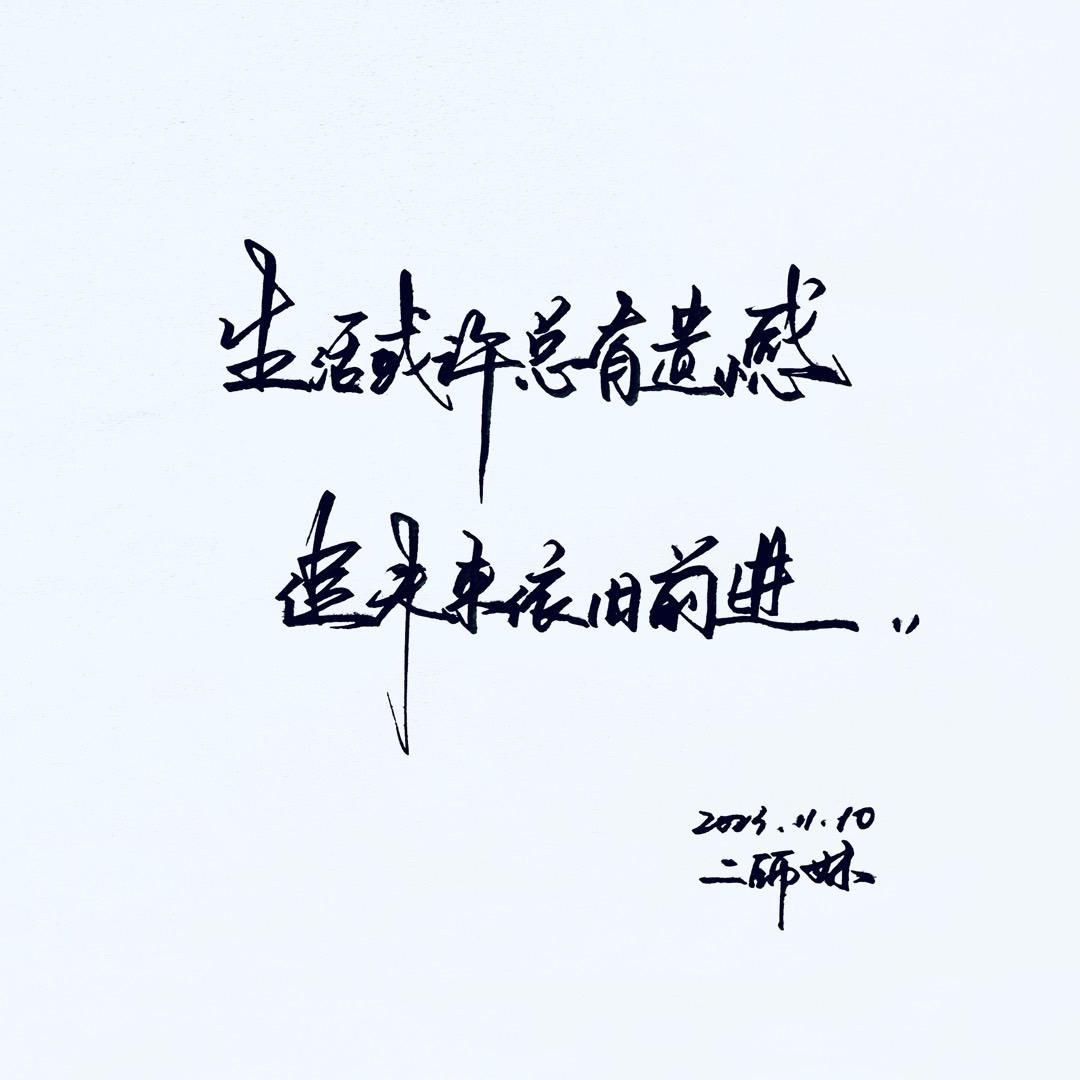 生活或许总有遗憾
但未来依旧前进..
2023.11.10
二师妹